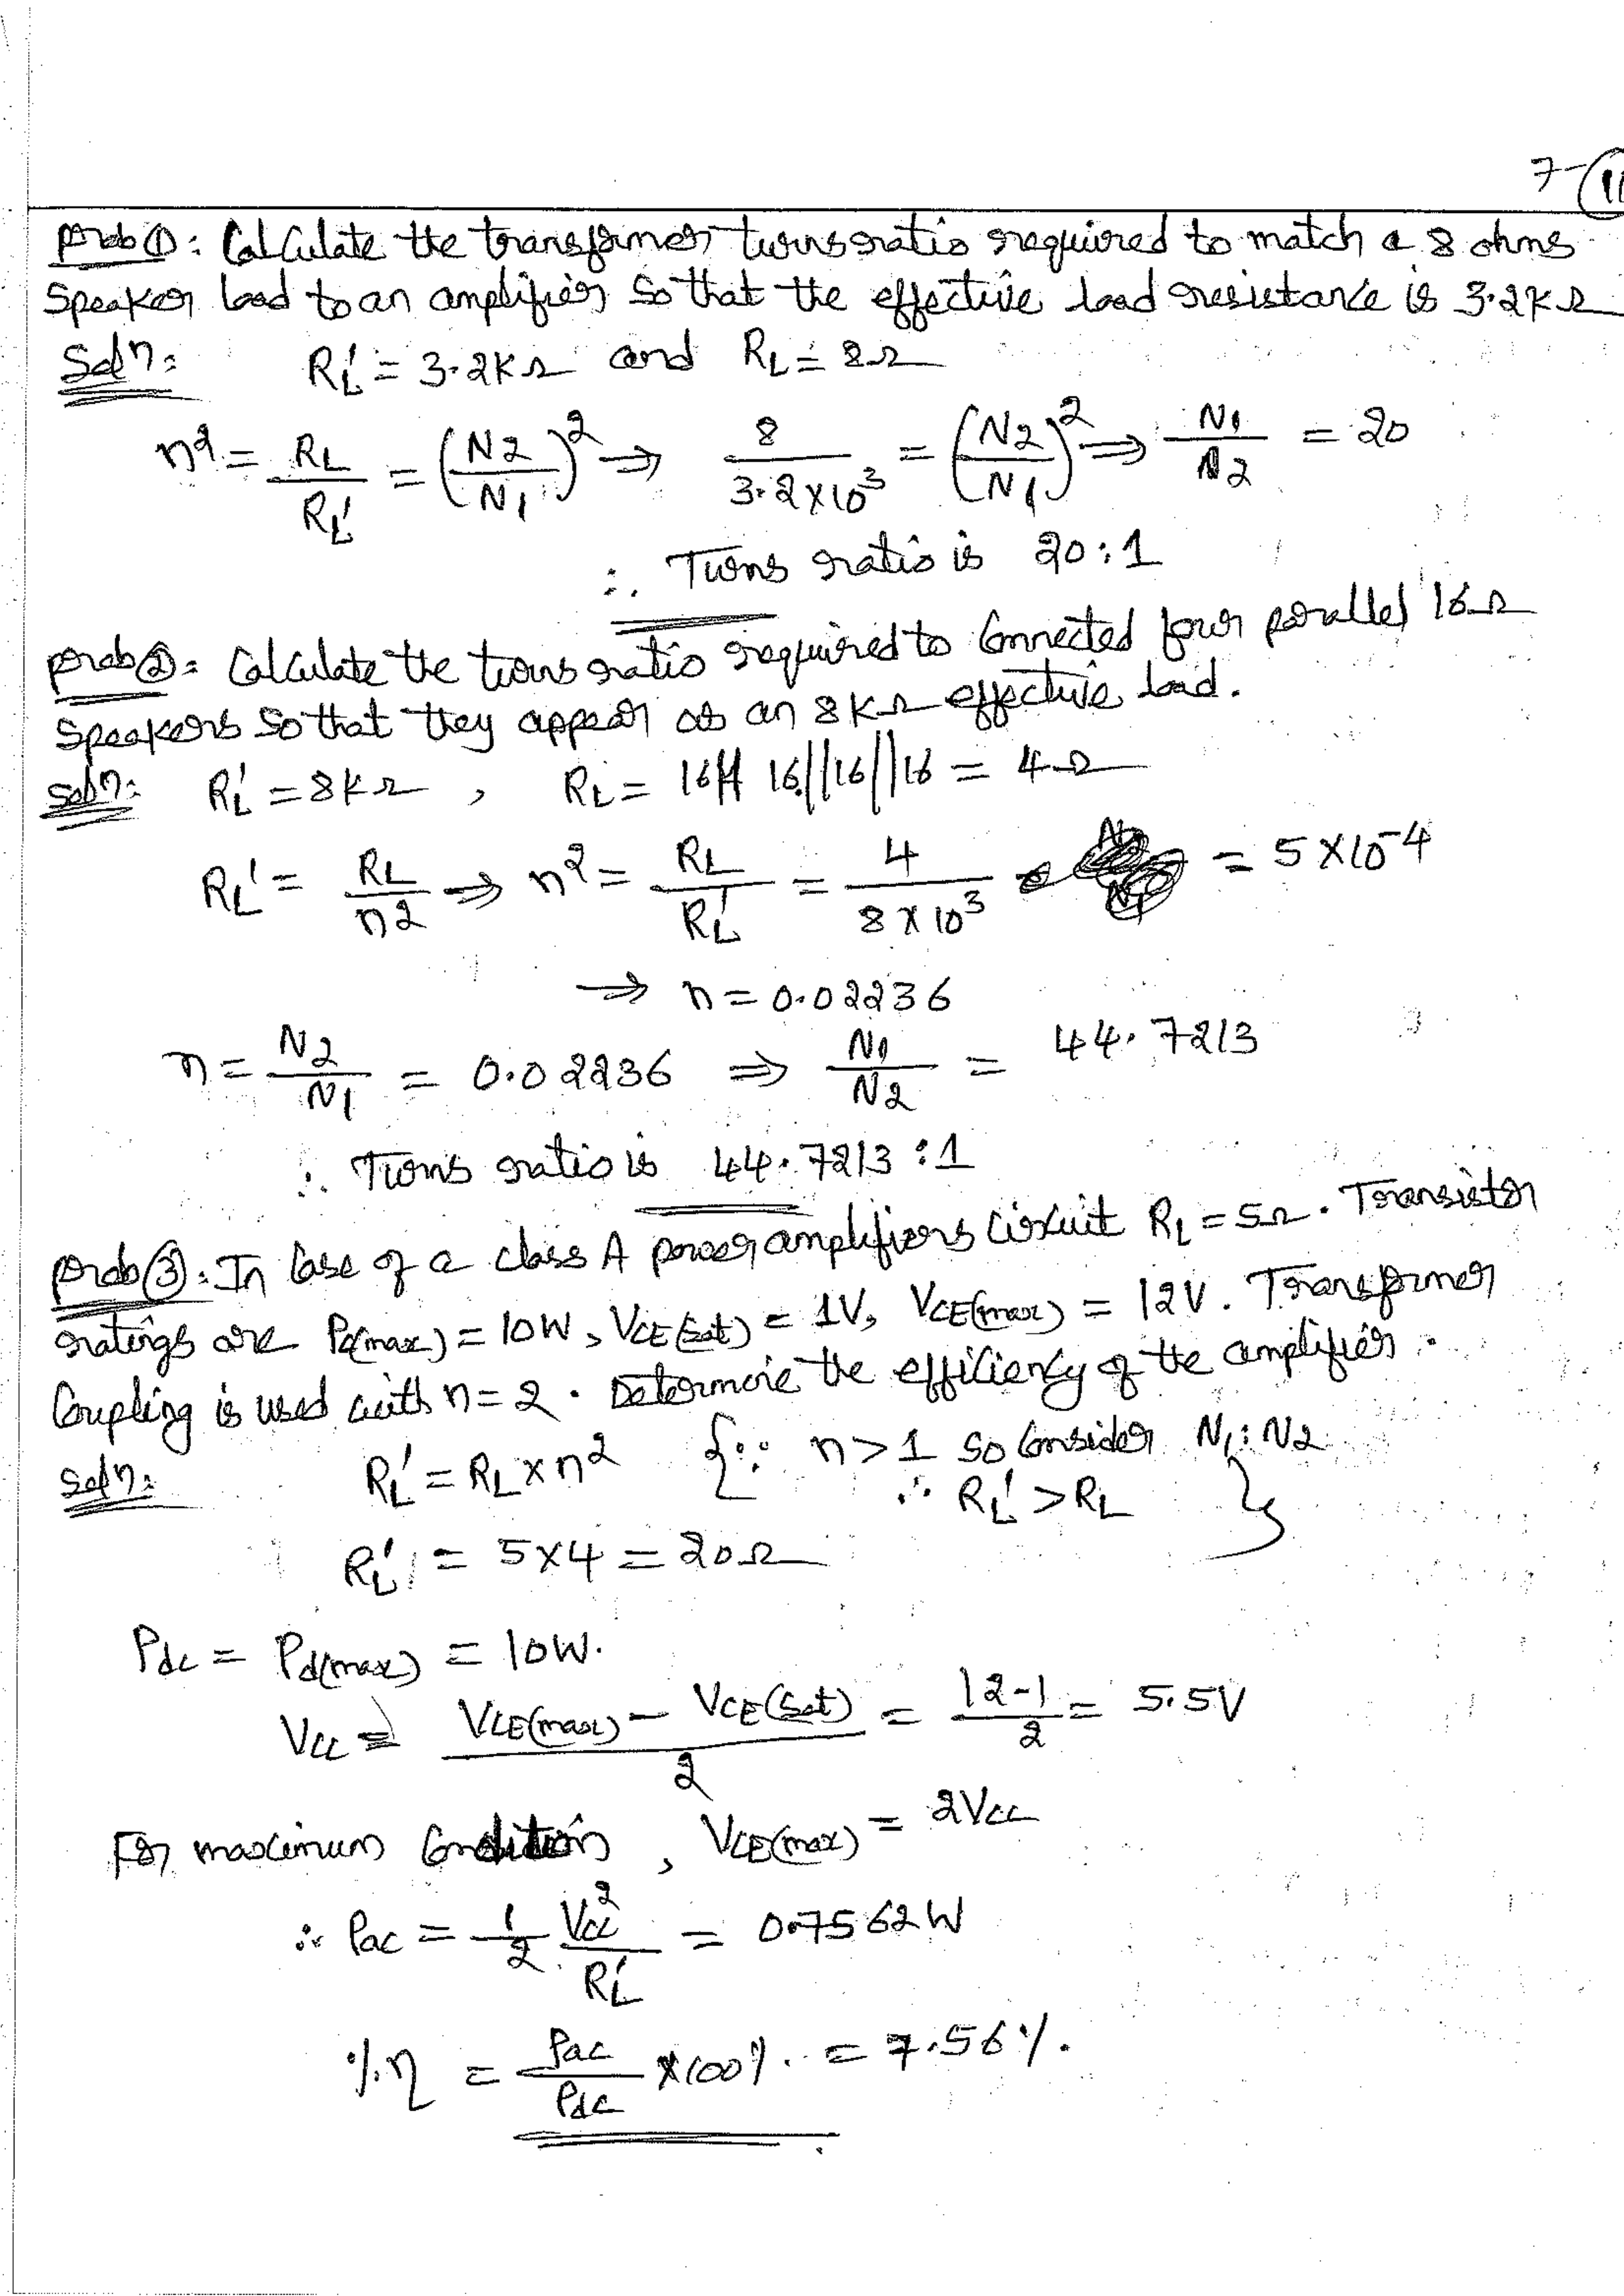 7-(11
prob(1): Calculate the transformer turns ratio required to match a 8 ohms
Speaker load to an amplifier so that the effective load resistance is 3.2KΩ
Solⁿ: RL' = 3.2KΩ and RL = 8Ω
n² = RL/RL' = (N2/N1)² ⇒ 8/(3.2×10³) = (N2/N1)² ⇒ N1/N2 = 20
∴ Turns ratio is 20:1
prob(2): Calculate the turns ratio required to Connected four parallel 16Ω
Speakers so that they appear as an 8KΩ effective load.
Solⁿ: RL' = 8KΩ , RL = 16||16||16||16 = 4Ω
RL' = RL/n² ⇒ n² = RL/RL' = 4/(8×10³) = 5×10⁻⁴
⇒ n = 0.02236
n = N2/N1 = 0.02236 ⇒ N1/N2 = 44.7213
∴ Turns ratio is 44.7213:1
prob(3): In Case of a class A power amplifiers Circuit RL = 5Ω. Transistor
ratings are Pd(max) = 10W, VCE(Sat) = 1V, VCE(max) = 12V. Transformer
Coupling is used with n=2. Determine the efficiency of the amplifier.
Solⁿ: RL' = RL × n² {∵ n>1 so Consider N1:N2
∴ RL' > RL }
RL' = 5×4 = 20Ω
Pdc = Pd(max) = 10W.
VCC = (VCE(max) - VCE(Sat))/2 = (12-1)/2 = 5.5V
For maximum Condition, VCE(max) = 2VCC
∴ Pac = 1/2 VCC²/RL' = 0.7562W
%η = Pac/Pdc ×100%. = 7.56%.